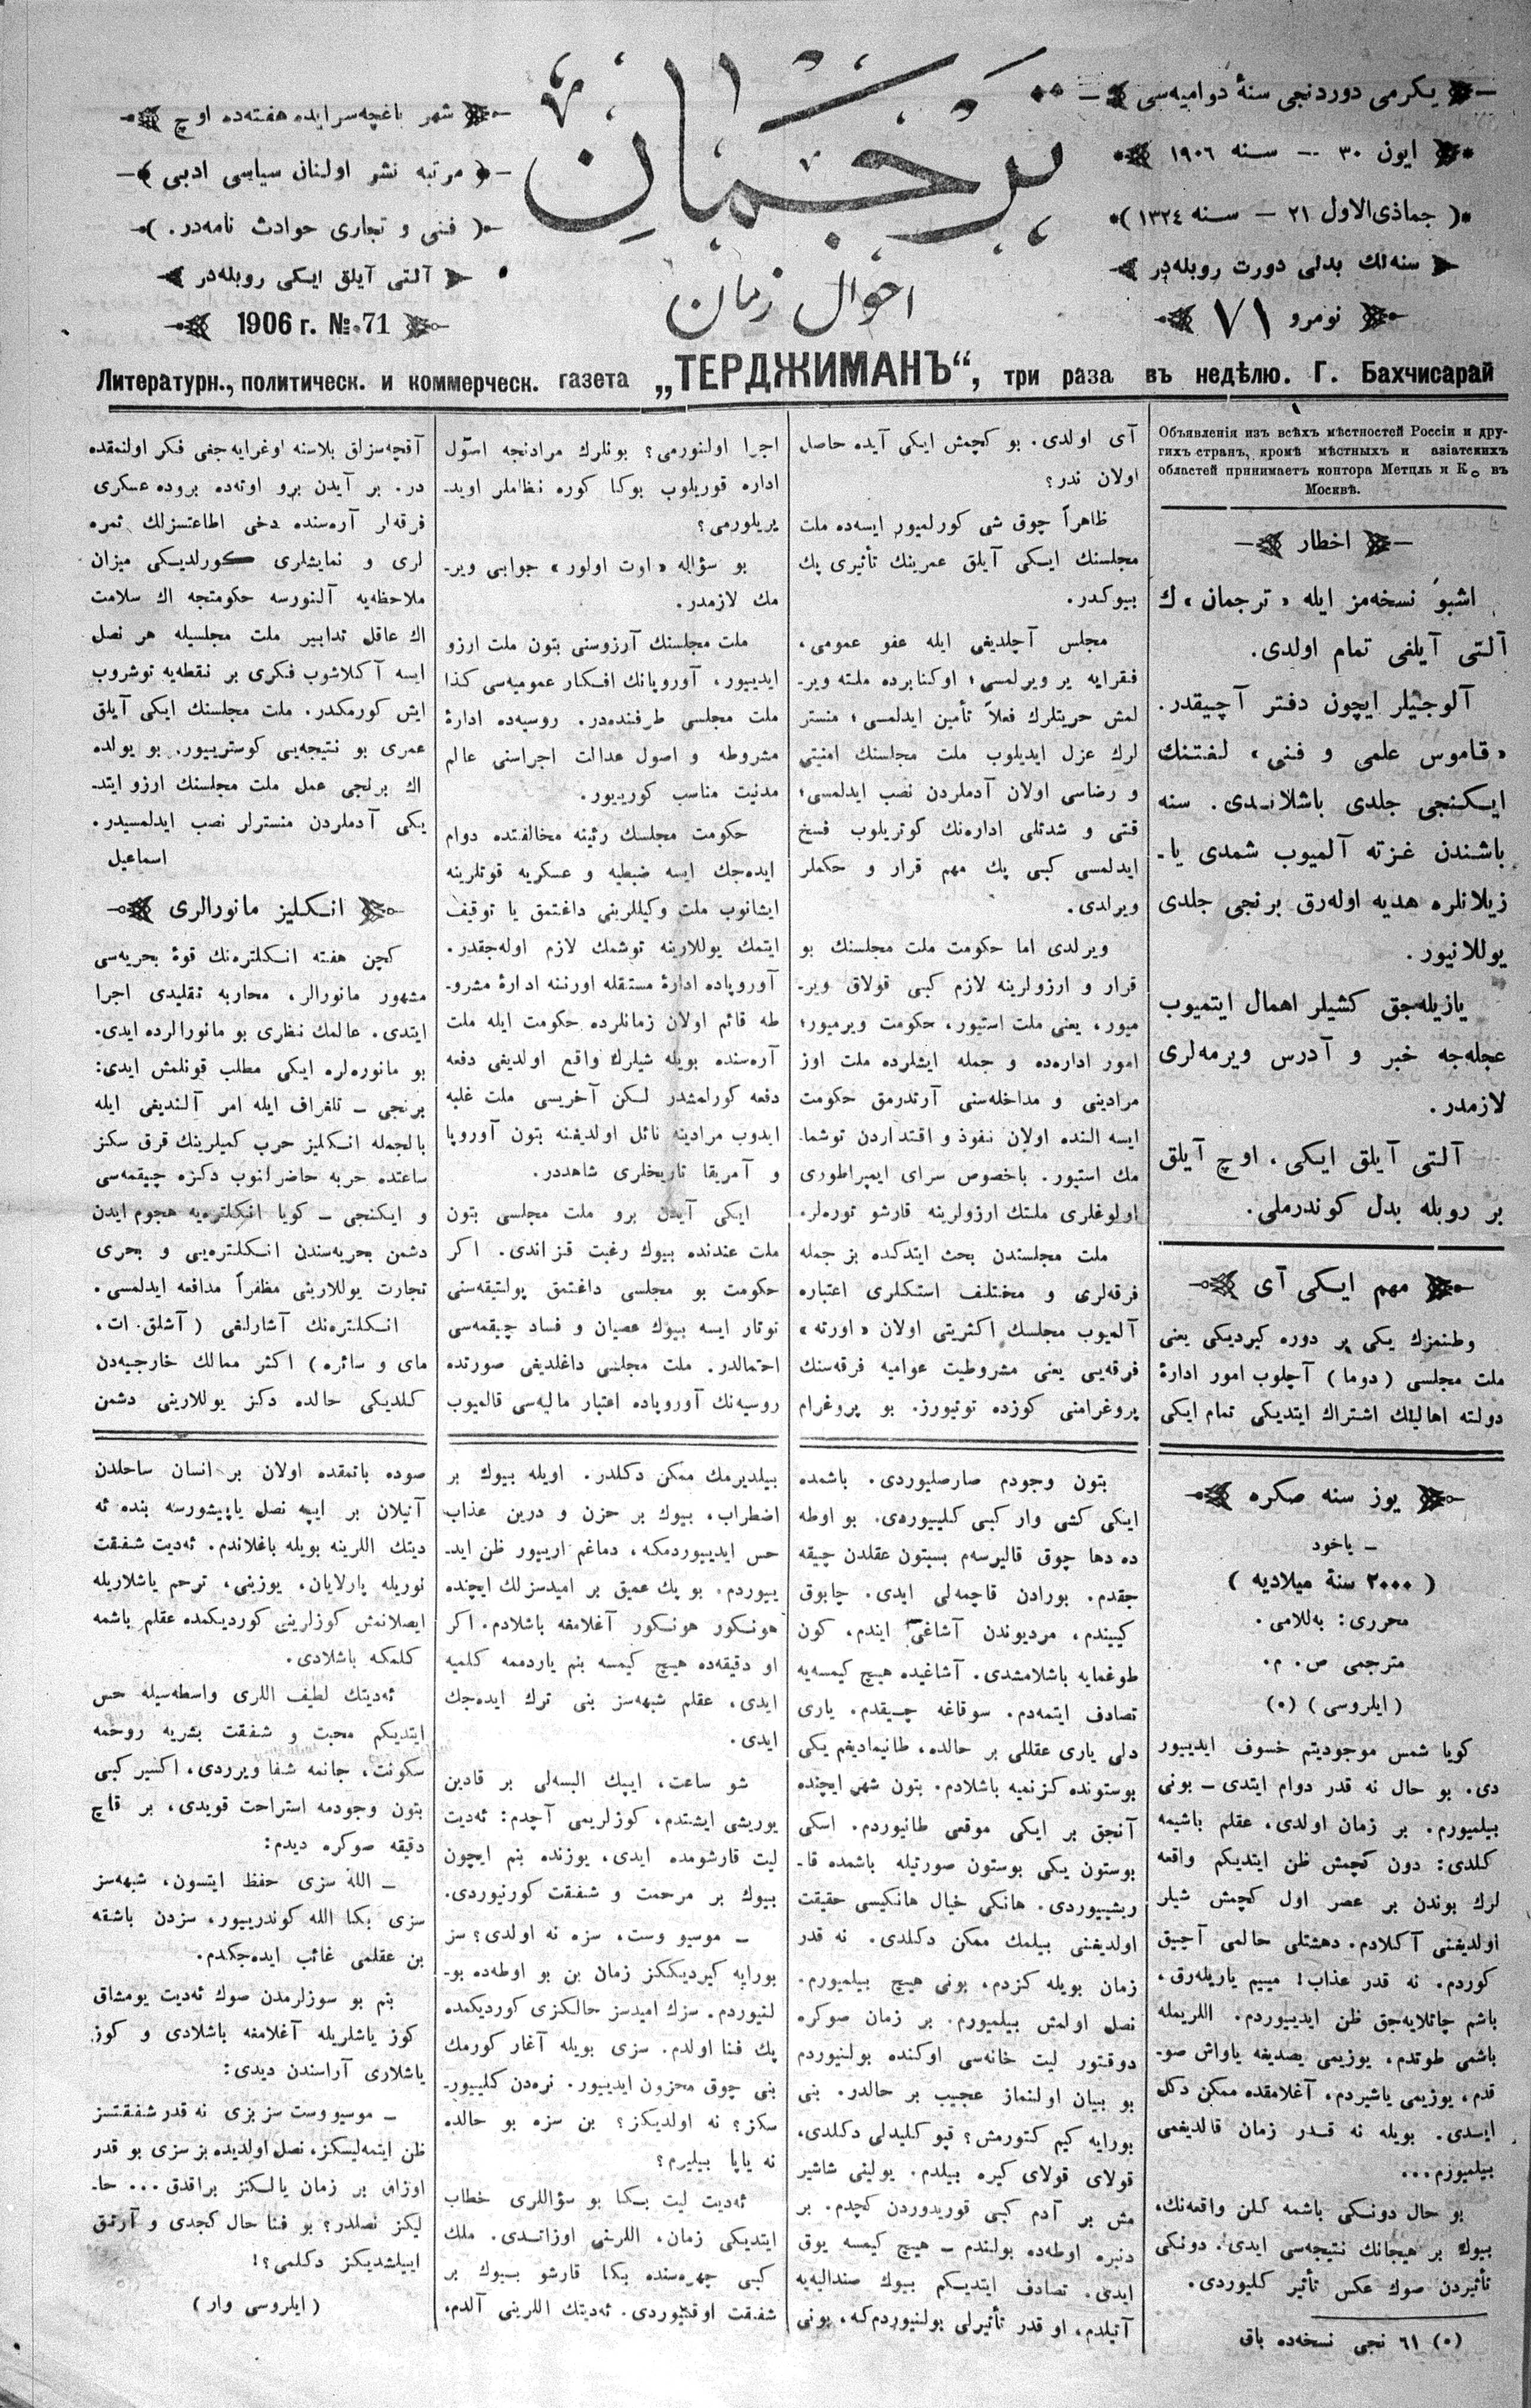 يكرمى دوردنجى سنۀ دواميه‌سى
ايون ٣٠ — سنه ١٩٠٦
( جماذى‌الاول ٢١ — سنه ١٣٢٤ )
سنه‌لك بدلى دورت روبله‌در
نومرو ٧١
ترجمان
احوال زمان
شهر باغچه‌سرايده هفته‌ده اوچ
مرتبه نشر اولنان سياسى ادبى
( فنى و تجارى حوادث نامه‌در. )
آلتى آيلق ايكى روبله‌در
1906 г. №. 71
Литературн., политическ. и коммерческ. газета „ТЕРДЖИМАНЪ“, три раза въ недѣлю. Г. Бахчисарай
Объявленія изъ всѣхъ мѣстностей Россіи и дру-
гихъ странъ, кромѣ мѣстныхъ и азіатскихъ
областей принимаетъ контора Метцль и Ко въ
Москвѣ.
اخطار
اشبو نسخه‌مز ايله «ترجمان»ك
آلتى آيلغى تمام اولدى.
آلوجيلر ايچون دفتر آچيقدر.
«قاموس علمى و فنى» لغتنك
ايكنجى جلدى باشلاندى. سنه
باشندن غزته آلميوب شمدى يا-
زيلانلره هديه اوله‌رق برنجى جلدى
يوللانيور.
يازيله‌جق كشيلر اهمال ايتميوب
عجله‌جه خبر و آدرس ويرمه‌لرى
لازمدر.
آلتى آيلق ايكى، اوچ آيلق
بر روبله بدل كوندرملى.
مهم ايكى آى
وطنمزك يكى بر دوره كيرديكى يعنى
ملت مجلسى (دوما) آچلوب امور ادارۀ
دولته اهالينك اشتراك ايتديكى تمام ايكى
آى اولدى. بو كچمش ايكى آيده حاصل
اولان ندر؟
ظاهراً چوق شى كورلميور ايسه‌ده ملت
مجلسنك ايكى آيلق عمرينك تأثيرى پك
بيوكدر.
مجلس آچلديغى ايله عفو عمومى،
فقرايه ير ويرلمسى؛ اوكتابرده ملته وير-
لمش حريتلرك فعلاً تأمين ايدلمسى؛ منستر
لرك عزل ايديلوب ملت مجلسنك امنيتى
و رضاسى اولان آدملردن نصب ايدلمسى؛
قتى و شدتلى اداره‌نك كوتريلوب فسخ
ايدلمسى كبى پك مهم قرار و حكملر
ويرلدى.
ويرلدى اما حكومت ملت مجلسنك بو
قرار و ارزولرينه لازم كبى قولاق وير-
ميور، يعنى ملت استيور، حكومت ويرميور؛
امور اداره‌ده و جمله ايشلرده ملت اوز
مرادينى و مداخله‌سنى آرتدرمق حكومت
ايسه النده اولان نفوذ و اقتداردن توشما-
مك استيور. باخصوص سراى ايمپراطورى
اولوغلرى ملتك ارزولرينه قارشو توره‌لر.
ملت مجلسندن بحث ايتدكده بز جمله
فرقه‌لرى و مختلف استكلرى اعتباره
آلميوب مجلسك اكثريتى اولان «اورته»
فرقه‌يى يعنى مشروطيت عواميه فرقه‌سنك
پروغرامنى كوزده توتيورز. بو پروغرام
اجرا اولنورمى؟ بونلرك مرادنجه اصول
اداره قوريلوب بوكا كوره نظاملر اويد-
يريلورمى؟
بو سؤاله «اوت اولور» جوابى وير-
مك لازمدر.
ملت مجلسنك آرزوسنى بتون ملت ارزو
ايدييور، آوروپانك افكار عموميه‌سى كذا
ملت مجلسى طرفنده‌در. روسيه‌ده ادارۀ
مشروطه و اصول عدالت اجراسنى عالم
مدنيت مناسب كورييور.
حكومت مجلسك رئينه مخالفتده دوام
ايده‌جك ايسه ضبطيه و عسكريه قوتلرينه
ايشانوب ملت وكيللرينى داغتمق يا توقيف
ايتمك يوللارينه توشمك لازم اوله‌جقدر.
آوروپاده ادارۀ مستقله اورننه ادارۀ مشرو-
طه قائم اولان زمانلرده حكومت ايله ملت
آره‌سنده بويله شيلرك واقع اولديغى دفعه
دفعه كورلمشدر لكن آخريسى ملت غلبه
ايدوب مرادينه نائل اولديغنه بتون آوروپا
و آمريقا تاريخلرى شاهددر.
ايكى آيدن برو ملت مجلسى بتون
ملت عندنده بيوك رغبت قزاندى. اكر
حكومت بو مجلسى داغتمق پولتيقه‌سنى
توتار ايسه بيوك عصيان و فساد چيقمه‌سى
احتمالدر. ملت مجلسى داغلديغى صورتده
روسيه‌نك آوروپاده اعتبار ماليه‌سى قالميوب
آقچه‌سزلق بلاسنه اوغرايه‌جغى فكر اولنمقده
در. بر آيدن برو اوته‌ده بروده عسكرى
فرقه‌لر آره‌سنده دخى اطاعتسزلك ثمره
لرى و نمايشلرى كورلديكى ميزان
ملاحظه‌يه آلنورسه حكومتجه اك سلامت
اك عاقل تدابير ملت مجلسيله هر نصل
ايسه آكلاشوب فكرى بر نقطه‌يه توشروب
ايش كورمكدر. ملت مجلسنك ايكى آيلق
عمرى بو نتيجه‌يى كوسترييور. بو يولده
اك برنجى عمل ملت مجلسنك ارزو ايتد-
يكى آدملردن منسترلر نصب ايدلمسيدر.
اسماعيل
انكليز مانورالرى
كچن هفته انكلتره‌نك قوۀ بحريه‌سى
مشهور مانورالر، محاربه تقليدى اجرا
ايتدى. عالمك نظرى بو مانورالرده ايدى.
بو مانوره‌لره ايكى مطلب قونلمش ايدى:
برنجى — تلغراف ايله امر آلنديغى ايله
بالجمله انكليز حرب كميلرينك قرق سكز
ساعتده حربه حاضرلنوب دكزه چيقمه‌سى
و ايكنجى — كويا انكلتره‌يه هجوم ايدن
دشمن بحريه‌سندن انكلتره‌يى و بحرى
تجارت يوللارينى مظفراً مدافعه ايدلمسى.
انكلتره‌نك آشارلغى (آشلق. ات،
ماى و سائره) اكثر ممالك خارجيه‌دن
كلديكى حالده دكز يوللارينى دشمن
يوز سنه صكره
— ياخود
( ٢٠٠٠ سنۀ ميلاديه )
محررى: به‌للامى.
مترجمى ص. م.
(ايلروسى) (٥)
كويا شمس موجوديتم خسوف ايدييور
دى. بو حال نه قدر دوام ايتدى — بونى
بيلميورم. بر زمان اولدى، عقلم باشيمه
كلدى: دون كچمش ظن ايتديكم واقعه
لرك بوندن بر عصر اول كچمش شيلر
اولديغنى آكلادم. دهشتلى حالمى آچيق
كوردم. نه قدر عذاب! مييم ياريله‌رق،
باشم چاتلايه‌جق ظن ايدييوردم. اللريمله
باشمى طوتدم، يوزيمى يصديغه ياواش صو-
قدم، يوزيمى ياشيردم، آغلامقده ممكن دكل
ايدى. بويله نه قدر زمان قالديغمى
بيلميورم...
بو حال دونكى باشمه كلن واقعه‌نك،
بيوك بر هيجانك نتيجه‌سى ايدى. دونكى
تأثيردن صوك عكس تأثير كليوردى.
(٥) ٦١ نجى نسخه‌ده باق
بتون وجودم صارصليوردى. باشمده
ايكى كشى وار كبى كلييوردى. بو اوطه
ده دها چوق قاليرسه‌م بسبتون عقلدن چيقه
جقدم. بورادن قاچمه‌لى ايدى. چابوق
كييندم، مرديوندن آشاغى ايندم، كون
طوغمايه باشلامشدى. آشاغيده هيچ كيمسه‌يه
تصادف ايتمه‌دم. سوقاغه چيقدم. يارى
دلى يارى عقللى بر حالده، طانيماديغم يكى
بوستونده كزنميه باشلادم. بتون شهر ايچنده
آنجق بر ايكى موقعى طانيوردم. اسكى
بوستون يكى بوستون صورتيله باشمده قا-
ريشييوردى. هانكى خيال هانكيسى حقيقت
اولديغنى بيلمك ممكن دكلدى. نه قدر
زمان بويله كزدم، بونى هيچ بيلميورم.
نصل اولمش بيلميورم. بر زمان صوكره
دوقتور ليت خانه‌سى اوكنده بولنيوردم
بو بيان اولنماز عجيب بر حالدر. بنى
بورايه كيم كتورمش؟ قپو كليدلى دكلدى،
قولاى قولاى كيره بيلدم. يولينى شاشير
مش بر آدم كبى قوريدوردن كچدم. بر
دنبره اوطه‌ده بولندم — هيچ كيمسه يوق
ايدى. تصادف ايتديكم بيوك صنداليه‌يه
آتيلدم، او قدر تأثيرلى بولنيوردم‌كه، بونى
بيلديرمك ممكن دكلدر. اويله بيوك بر
اضطراب، بيوك بر حزن و درين عذاب
حس ايدييوردمكه، دماغم ارييور ظن ايد-
ييوردم. بو پك عميق بر اميدسزلك ايچنده
هونكور هونكور آغلامغه باشلادم. اكر
او دقيقه‌ده هيچ كيمسه بنم ياردممه كلميه
ايدى، عقلم شبهه‌سز بنى ترك ايده‌جك
ايدى.
شو ساعت، ايپك البسه‌لى بر قادين
يوريشى ايشتدم، كوزلريمى آچدم: ئه‌ديت
ليت قارشومده ايدى، يوزنده بنم ايچون
بيوك بر مرحمت و شفقت كورنيوردى.
— موسيو وست، سزه نه اولدى؟ سز
بورايه كيرديككز زمان بن بو اوطه‌ده بو-
لنيوردم. سزك اميدسز حالكزى كورديكمده
پك فنا اولدم. سزى بويله آغلار كورمك
بنى چوق محزون ايدييور. نره‌دن كلييور-
سكز؟ نه اولديكز؟ بن سزه بو حالده
نه ياپا بيليرم؟
ئه‌ديت ليت بكا بو سؤاللرى خطاب
ايتديكى زمان، اللرينى اوزاتدى. ملك
كبى چهره‌سنده بكا قارشو بيوك بر
شفقت اوقنيوردى. ئه‌ديتك اللرينى آلدم،
صوده باتمقده اولان بر انسان ساحلدن
آتيلان بر ايپه نصل ياپيشورسه بنده ئه
ديتك اللرينه بويله باغلاندم. ئه‌ديت شفقت
نوريله پارلايان، يوزينى، ترحم ياشلاريله
ايصلانمش كوزلرينى كورديكمده عقلم باشمه
كلمكه باشلادى.
ئه‌ديتك لطيف اللرى واسطه‌سيله حس
ايتديكم محبت و شفقت بشريه روحمه
سكونت، جانمه شفا ويرردى، اكسير كبى
بتون وجودمه استراحت قويدى، بر قاچ
دقيقه صوكره ديدم:
— الله سزى حفظ ايتسون، شبهه‌سز
سزى بكا الله كوندرييور، سزدن باشقه
بن عقلمى غائب ايده‌جكدم.
بنم بو سوزلرمدن صوك ئه‌ديت يومشاق
كوز ياشلريله آغلامغه باشلادى و كوز
ياشلارى آراسندن ديدى:
— موسيو وست سز بزى نه قدر شفقتسز
ظن ايتمه‌ليسكز، نصل اولديده بز سزى بو قدر
اوزاق بر زمان يالكز براقدق... حا-
ليكز نصلدر؟ بو فنا حال كچدى و آرتق
اييلشديكز دكلمى؟!
(ايلروسى وار)